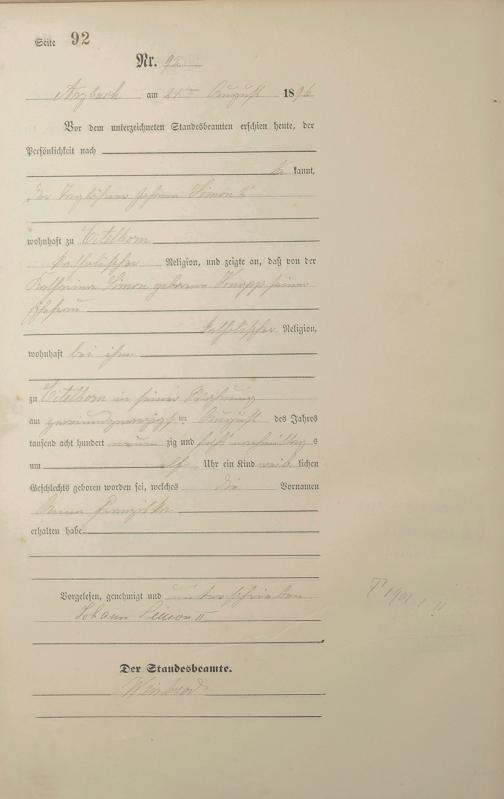 Seite 92
Nr. 92
Arzbach am August 1896
Vor dem unterzeichneten Standesbeamten erschien heute, der
Persönlichkeit nach
be kannt,
der Taglöhner Johann Simon II
wohnhaft zu Eitelborn
katholischer Religion, und zeigte an, daß von der
Katharina Simon geborene Knopp seiner
Ehefrau
katholischer Religion,
wohnhaft bei ihm
zu Eitelborn in seiner Wohnung
am zweiundzwanzigsten August des Jahres
tausend acht hundert neun zig und sechs nachmittags
um elf Uhr ein Kind weib lichen
Geschlechts geboren worden sei, welches die Vornamen
Anna Franziska
erhalten habe.
Vorgelesen, genehmigt und unterschrieben
Johann Simon II
Der Standesbeamte.